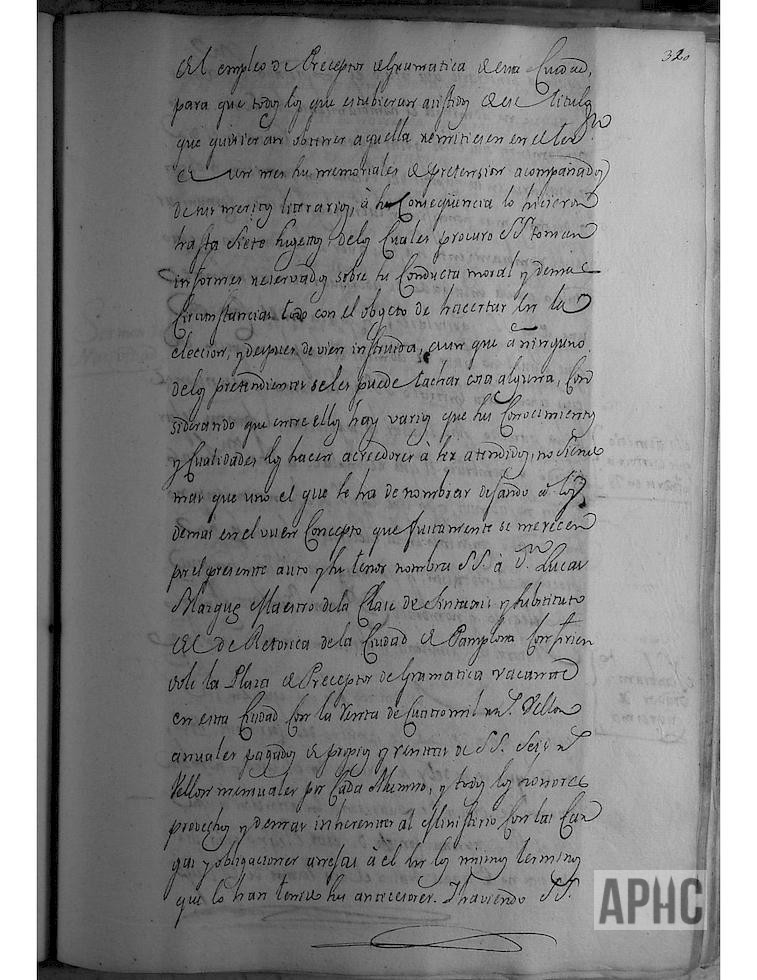 320
del empleo de Preceptor de Gramatica de esta Ciudad,
para que todos los que estubieran asistidos de ese titulo
que quisieran obtener aquella remitiesen en el termno
de un mes sus memoriales de pretension acompañados
de sus meritos literarios, à su Consequencia lo hicieron
hasta Siete sugetos, delos Cuales procuro SS. toman
informes reservados sobre su Conducta moral y demas
Circunstancias todo con el obgeto de hacertar en la
eleccion, y despues de vien instruida, aun que à ninguno
delos pretendientes seles puede tachar cosa alguna, Con
siderando que entre ellos hay varios que sus Conocimientos
y Cualidades los hacen acreedores à ser atendidos, no siendo
mas que uno el que se ha de nombrar dejando à los
demas en el vuen Concepto que justamente se merecen
por el presente auto y su tenor nombra SS. à Dn. Lucas
Marquez Maestro dela Clase de Sintaxis y substituto
del de Retorica de la Ciudad de Pamplona Confirien
dole la Plaza de Preceptor de Gramatica vacante
en esta Ciudad Con la Renta de Cuatro mil rs. Vellon
anuales pagados de propios y rentas de SS. Seis rs.
Vellon mensuales por Cada Alumno, y todos los honores
provechos y demas inherentes al Ministerio Con las Car
gas y obligaciones anejas à el en los mismos terminos
que lo han tenido sus antecesores. Y haviendo SS.
APHC